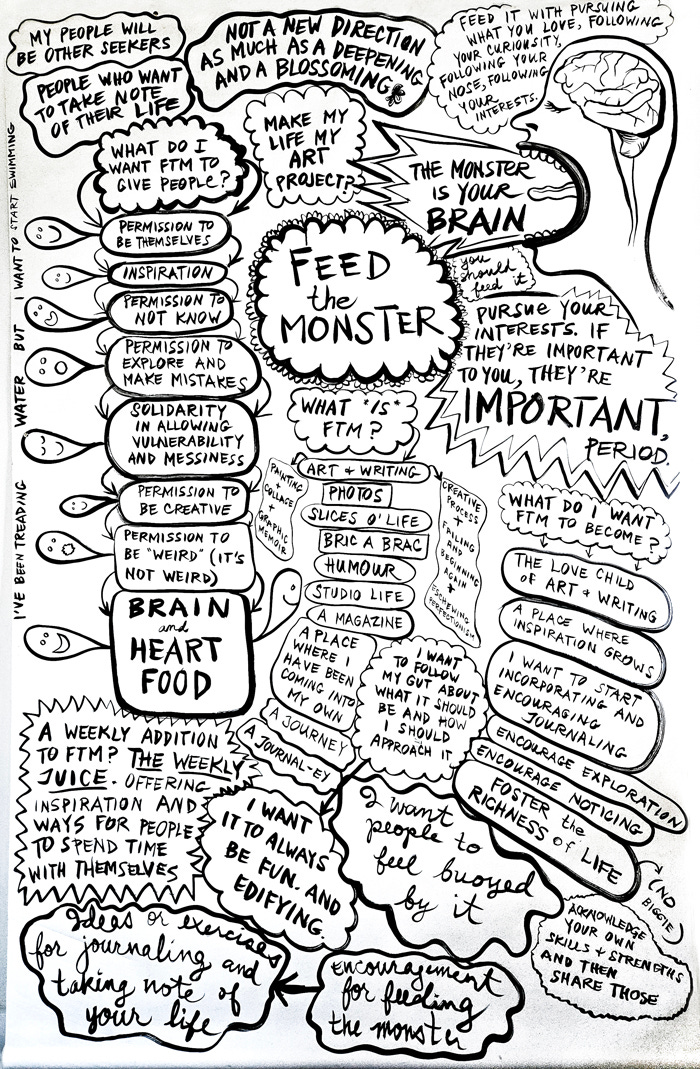 MY PEOPLE WILL
BE OTHER SEEKERS
PEOPLE WHO WANT
TO TAKE NOTE
OF THEIR LIFE
NOT A NEW DIRECTION
AS MUCH AS A DEEPENING
AND A BLOSSOMING
FEED IT WITH PURSUING
WHAT YOU LOVE, FOLLOWING
YOUR CURIOUSITY,
FOLLOWING YOUR
NOSE, FOLLOWING
YOUR
INTERESTS.
WHAT DO I
WANT FTM TO
GIVE PEOPLE?
PERMISSION TO
BE THEMSELVES
INSPIRATION
PERMISSION TO
NOT KNOW
PERMISSION TO
EXPLORE AND
MAKE MISTAKES
SOLIDARITY
IN ALLOWING
VULNERABILITY
AND MESSINESS
PERMISSION TO
BE CREATIVE
PERMISSION TO
BE "WEIRD" (IT'S
NOT WEIRD)
BRAIN
and
HEART
FOOD
I'VE BEEN TREADING WATER BUT I WANT TO START SWIMMING
MAKE MY
LIFE MY
ART
PROJECT?
THE MONSTER
IS YOUR
BRAIN
you
should
feed it
FEED
the
MONSTER
PURSUE YOUR
INTERESTS. IF
THEY'RE IMPORTANT
TO YOU, THEY'RE
IMPORTANT,
PERIOD.
WHAT *IS*
FTM?
ART + WRITING
PHOTOS
SLICES O' LIFE
BRIC A BRAC
HUMOUR
STUDIO LIFE
A MAGAZINE
A PLACE
WHERE I
HAVE BEEN
COMING INTO
MY OWN
A JOURNEY
A JOURNAL-EY
PAINTING
+
COLLAGE
+
GRAPHIC
MEMOIR
CREATIVE
PROCESS
+
FAILING
AND
BEGINNING
AGAIN
+
ESCHEWING
PERFECTIONISM
I WANT
TO FOLLOW
MY GUT ABOUT
WHAT IT SHOULD
BE AND HOW
I SHOULD
APPROACH IT
WHAT DO I WANT
FTM TO BECOME?
THE LOVE CHILD
OF ART & WRITING
A PLACE WHERE
INSPIRATION GROWS
I WANT TO START
INCORPORATING AND
ENCOURAGING
JOURNALING
ENCOURAGE EXPLORATION
ENCOURAGE NOTICING
FOSTER the
RICHNESS of LIFE
(NO
BIGGIE)
ACKNOWLEDGE
YOUR OWN
SKILLS + STRENGTHS
AND THEN
SHARE THOSE
A WEEKLY ADDITION
TO FTM? THE WEEKLY
JUICE. OFFERING
INSPIRATION AND
WAYS FOR PEOPLE
TO SPEND TIME
WITH THEMSELVES
I WANT
IT TO ALWAYS
BE FUN. AND
EDIFYING.
I want
people to
feel buoyed
by it
Encouragement
for feeding
the monster
Ideas or exercises
for journaling and
taking note of
your life